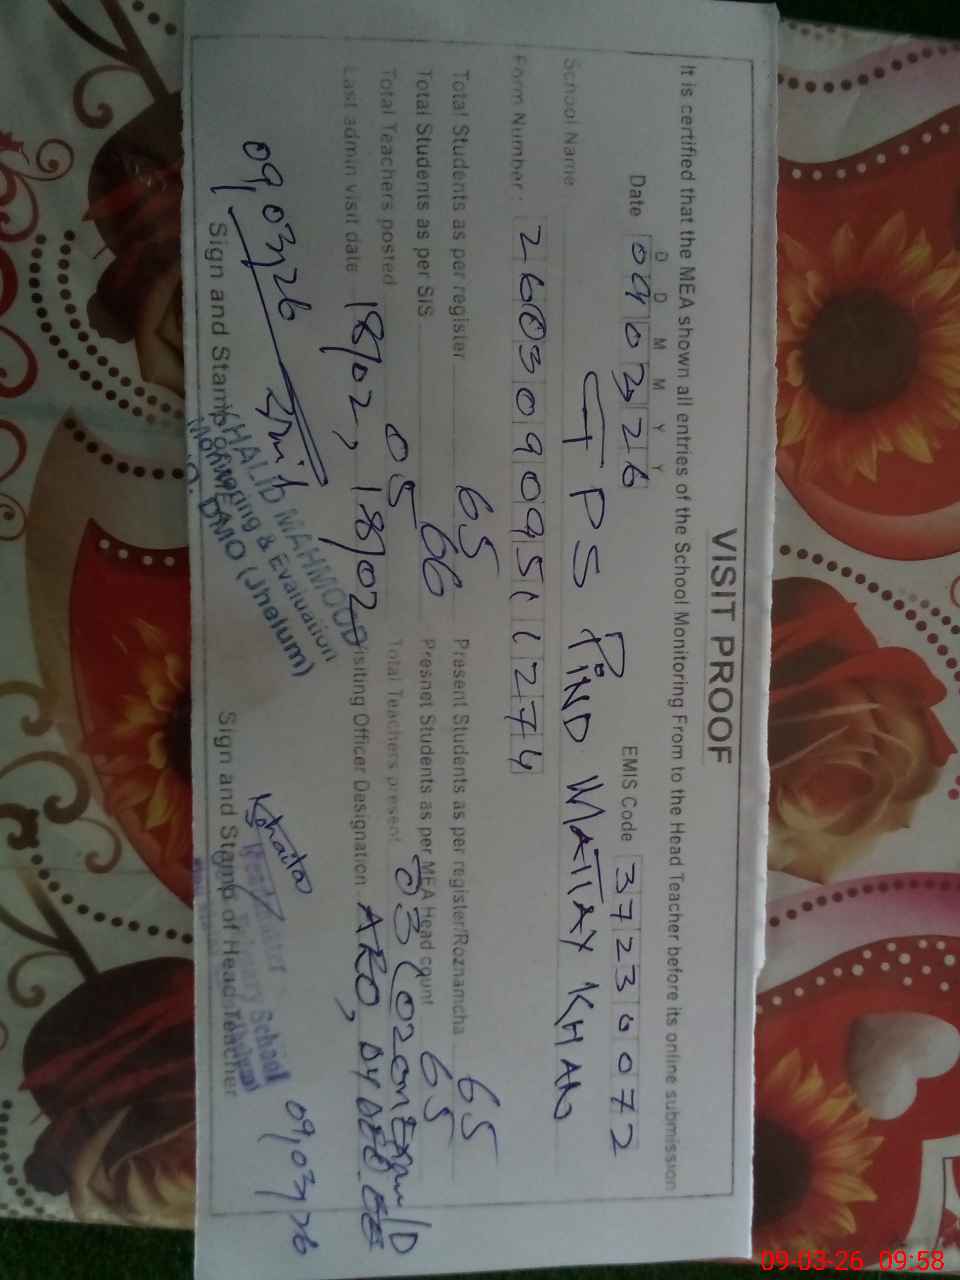 VISIT PROOF
It is certified that the MEA shown all entries of the School Monitoring From to the Head Teacher before its online submission
D D M M Y Y
Date 090326 EMIS Code 37230072
School Name GPS PIND MATTAY KHAN
Form Number : 26030909511274
Total Students as per register 65 Present Students as per register/Roznamcha 65
Total Students as per SIS 66 Presnet Students as per MEA Head count 65
Total Teachers posted 05 Total Teachers present 03(02 on
Last admin visit date 18/02, 18/02 Visiting Officer Designation AEO, DY DEO
09,03,26
KHALID MAHMOOD
Monitoring & Evaluation
DMO (Jhelum)
Sign and Stamp of
09,03,26
School
Sign and Stamp of Head Teacher
09-03-26 09:58